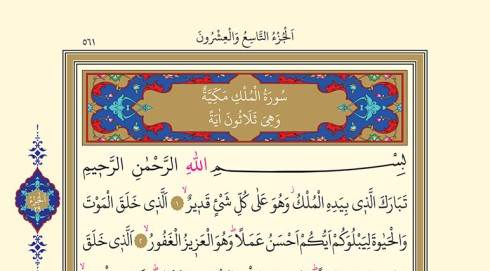 اَلْجُزْءُ التَّاسِعُ وَالْعِشْرُونَ
٥٦١
سُورَةُ الْمُلْكِ مَكِّيَّةٌ
وَهِيَ ثَلَاثُونَ اٰيَةً
بِسْــــمِ اللّٰهِ الرَّحْمٰنِ الرَّحٖيمِ
تَبَارَكَ الَّذٖي بِيَدِهِ الْمُلْكُۘ وَهُوَ عَلٰى كُلِّ شَيْءٍ قَدٖيرٌۙ ﴿١﴾ اَلَّذٖي خَلَقَ الْمَوْتَ
وَالْحَيٰوةَ لِيَبْلُوَكُمْ اَيُّكُمْ اَحْسَنُ عَمَلًاؕ وَهُوَ الْعَزٖيزُ الْغَفُورُۙ ﴿٢﴾ اَلَّذٖي خَلَقَ
اَلْجُزْءُ